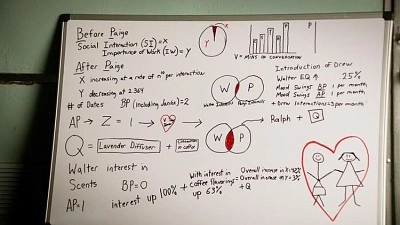 Before Paige
Social Interaction (SI) = X
Importance of Work (IW) = Y
X
Y
P
V = MINS OF CONVERSATION
After Paige
X increasing at a rate of n¹⁰ per interaction
Y decreasing at 2.364
# of Dates BP (including Jacks) = 2
W P
Introduction of Drew
Walter EQ ↑ 25%
Mood Swings BP 1 per month
Mood Swings AP 1 per month
+ Drew Interactions = 3 per month
AP → Z = 1 →
W P
→ Ralph + Q
Q = Lavender Diffuser + in coffee
Walter interest in
Scents BP = 0
AP = 1 interest up 100% +
With interest in
coffee flavorings
up 63%
Overall increase in
= Overall increase in
+ Q